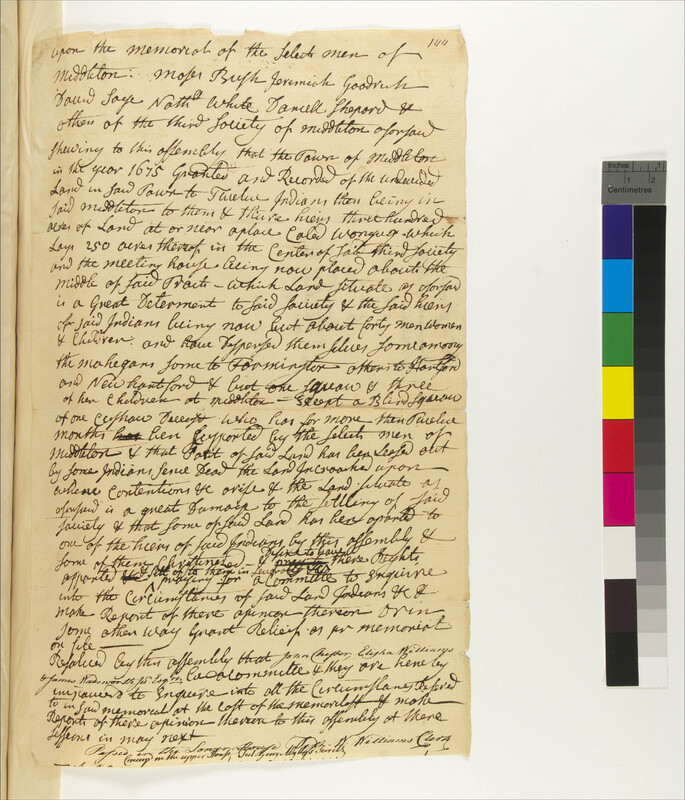 144
upon the memorial of the Select men of
Middleton: Moses Bush Jeremiah Goodrich
David Sage Nathll White Daniell Shepard &
others of the third Society of middleton aforsaid
shewing to this assembly that the Town of Middleton
in the year 1675 Granted and Recorded of the undevided
Land in said Town to Twelve Indians then being in
said middleton to them & there hiers three hundred
acres of Land at or near a place Caled Wongog which
Lays 250 acres thereof in the Center of said third Society
and the meeting house being now placed about the
middle of said Tract - which Land situate as aforsaid
is a Great Determent to said Society & the said hiers
of said Indians being now but about forty men women
& Children and have Dispersed them selves some among
the mohegans some to Farmington others to Hartford
and New hartford & but one squaw & three
of her Children at middleton - Except a Blind Squaw
of one Cushaw Deceast who has for more then Twelve
months been supported by the Select men of
Middleton & that Part of said Land has ben Leased out
by some Indians sence Dead the Land Incroached upon
where Contentions &c arise & the Land situate as
aforsaid is a great Damage to the settling of said
Society & that some of said Land has ben aparted to
one of the hiers of said Indians by this assembly &
some of them there Rights
aparted to them
praying for a Committe to Enquire
into the Circumstances of said Land Indians &c &
make Report of there opinion thereon or in
some other way Grant Relief as pr memorial
on file
Resolved by this assembly that John Chester Elisha Williams
& James Wadsworth jr Esqrs be a Committe & they are hereby
impowered to Enquire into all the Circumstances Refered
to in said memorial at the Cost of the memorialists & make
Report of there opinion thereon to this assembly at there
sessions in may next
Passed in the Lower House W Williams Clerk
in the upper House